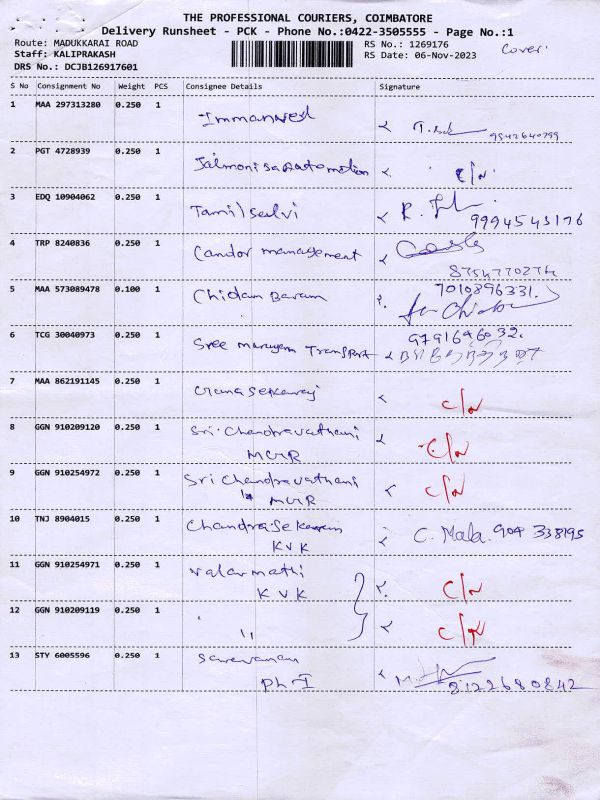 THE PROFESSIONAL COURIERS, COIMBATORE
Delivery Runsheet - PCK - Phone No.:0422-3505555 - Page No.:1
Route: MADUKKARAI ROAD
Staff: KALIPRAKASH
DRS No.: DCJB126917601
RS No.: 1269176
RS Date: 06-Nov-2023
Cover:
S No Consignment No Weight PCS Consignee Details Signature
1 MAA 297313280 0.250 1 Immanuel
2 PGT 4728939 0.250 1 C/N
3 EDQ 10904062 0.250 1 Tamil selvi 9994543176
4 TRP 8240836 0.250 1 Candor management
5 MAA 573089478 0.100 1 Chidam Baram 7010896331.
6 TCG 30040973 0.250 1 Sree Murugan Transport 9791646032.
7 MAA 862191145 0.250 1 C/N
8 GGN 910209120 0.250 1 Sri. Chandravathani C/N
MGR
9 GGN 910254972 0.250 1 Sri Chandravathani C/N
MGR
10 TNJ 8904015 0.250 1 Chandrasekaran C. Mala. 904 338195
KVK
11 GGN 910254971 0.250 1 Valarmathi C/N
KVK
12 GGN 910209119 0.250 1 " C/N
13 STY 6005596 0.250 1 Saravanan
Ph-I 8122680842